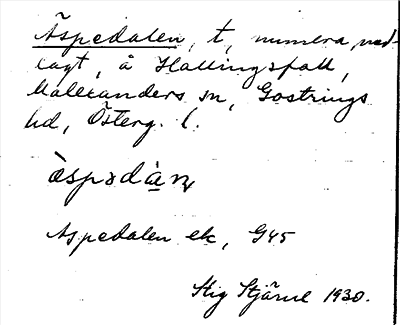 Äspedalen, t, numera ned-
lagt, å Hallingsfall,
Malexanders sn, Göstrings
hd, Österg. l.
àspədàn
Aspedalen ek, G45
Stig Stjärne 1930.